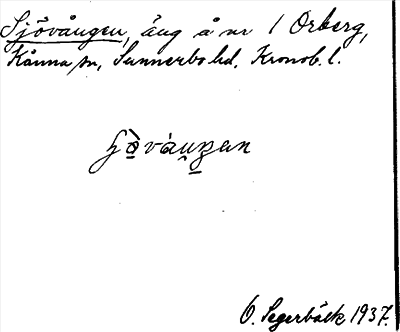 Sjövången, äng å nr 1 Orberg,
Kånna sn, Sunnerbo hd, Kronob. l.
O. Segerbäck 1937.